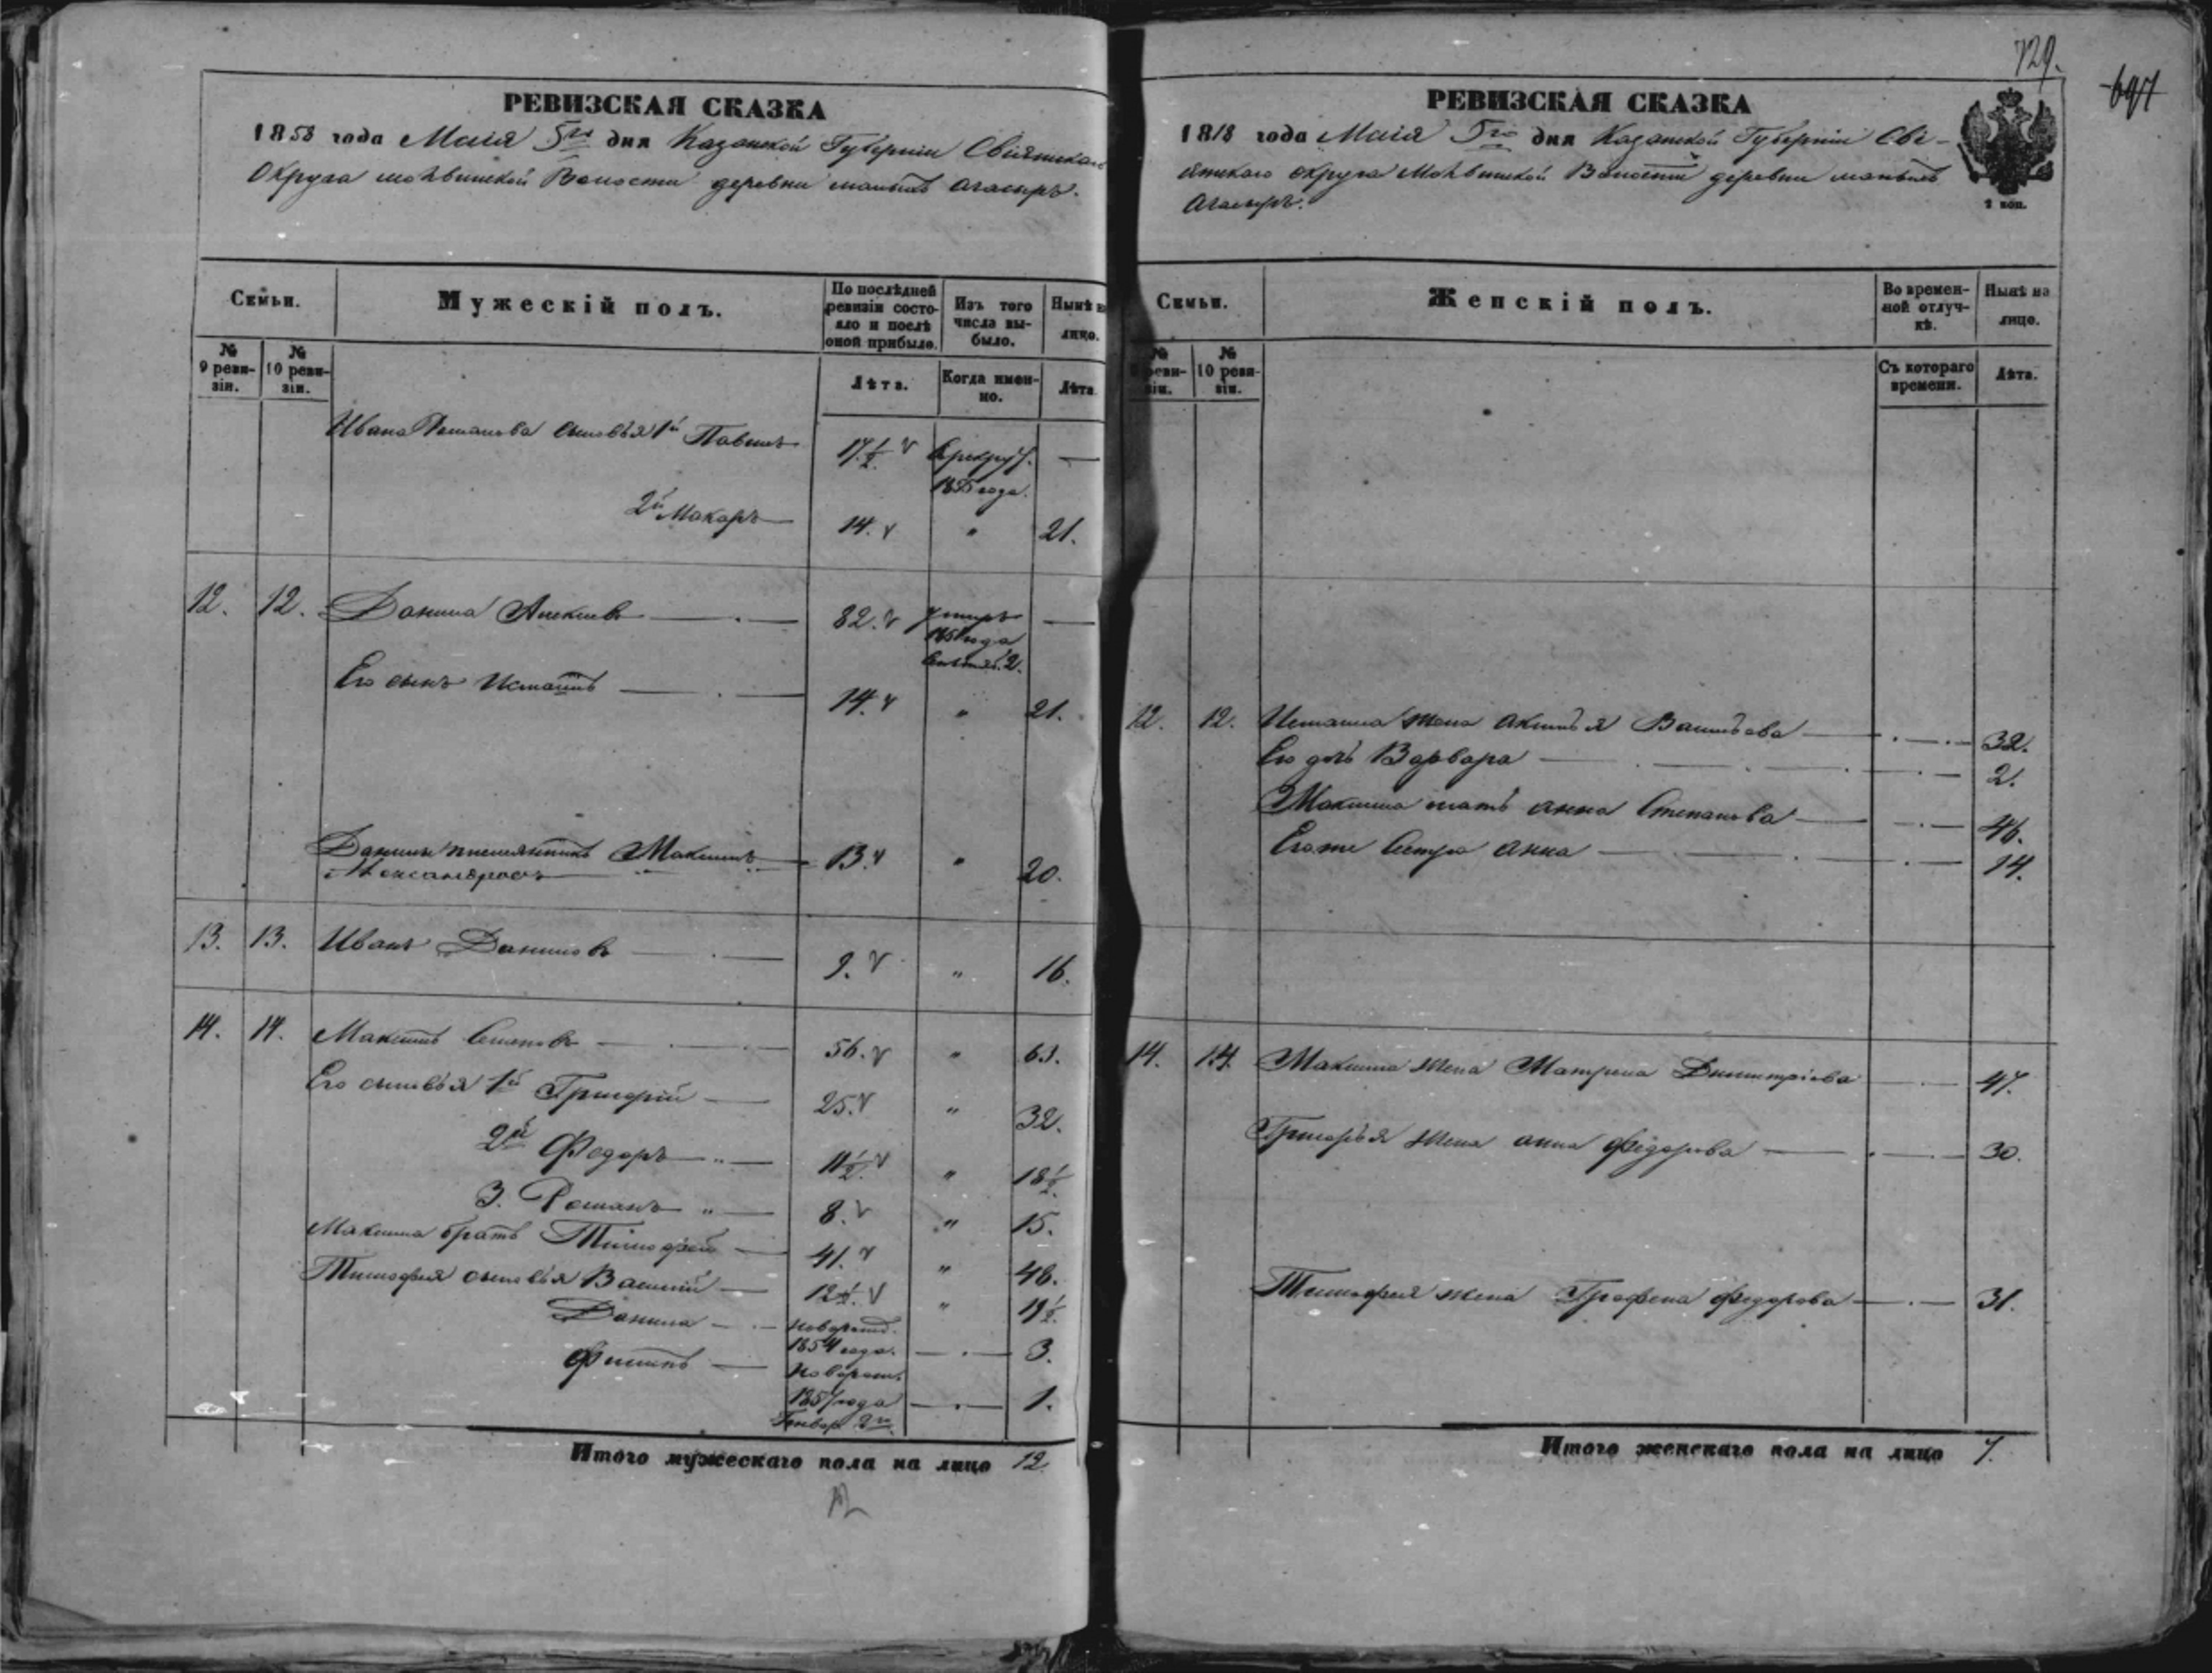 729.
697
РЕВИЗСКАЯ СКАЗКА
1858 года Маія 5го дня Казанской Губерніи Свіяжскаго
Округа Волости деревни
Семьи.
Мужескій полъ.
По послѣдней ревизіи состояло и послѣ оной прибыло.
Изъ того числа выбыло.
Нынѣ на лицо.
№ 9 ревизіи.
№ 10 ревизіи.
Лѣта.
Когда именно.
Лѣта
Ивана Романова сыновья 1й Павелъ 17 1/2. —
2й Макаръ 14. " 21.
12. 12. Данила Алексѣевъ 82. умеръ —
Его сынъ 14. " 21.
Данилы племянникъ Максимъ 13. " 20.
Александровъ
13. 13. Иванъ Даниловъ 9. " 16.
14. 14. Максимъ Семеновъ 56. " 63.
Его сыновья 1й Григорій 25. " 32.
2й Федоръ 11 1/2. " 18 1/2.
3. Романъ 8. " 15.
Максима братъ Тимофей 41. " 48.
Тимофея сыновья Василій 12 1/2. " 19 1/2.
Данила новорожд. 1854 года. 3.
Филипъ новорож. 1857 года Генвар 2го 1.
Итого мужескаго пола на лицо 12
12
РЕВИЗСКАЯ СКАЗКА
1858 года Маія 5го дня Казанской Губерніи Сві-
яжскаго округа Волости деревни
2 коп.
Семьи.
Женскій полъ.
Во временной отлучкѣ.
Нынѣ на лицо.
№ 9 ревизіи.
№ 10 ревизіи.
Съ котораго времени.
Лѣта.
12. 12. жена Аксинья Васильева 32.
Его дочь Варвара 2.
Максима мать Анна Степанова 46.
Его же Сестра Анна 14.
14. 14. Максима жена Матрена Димитріева 47.
Григорья жена Анна Федорова 30.
Тимофея жена Графена Федорова 31.
Итого женскаго пола на лицо 7.